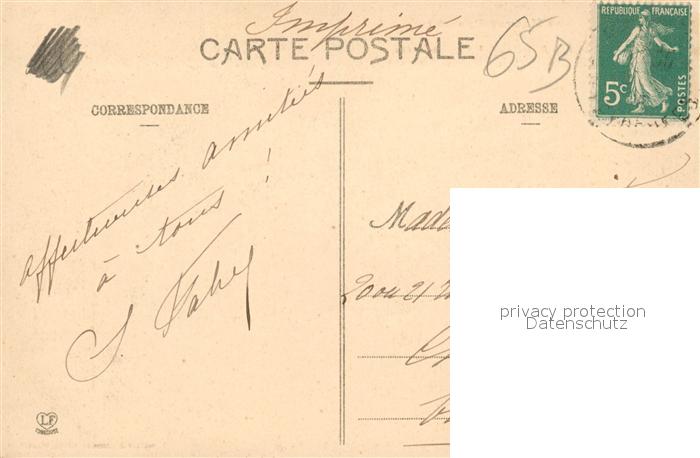 Imprimé
CARTE POSTALE
65B
RÉPUBLIQUE FRANÇAISE
5c
POSTES
CORRESPONDANCE
ADRESSE
affectueuses amitiés
à tous !
Mada
20 ou 21
privacy protection
Datenschutz
LF